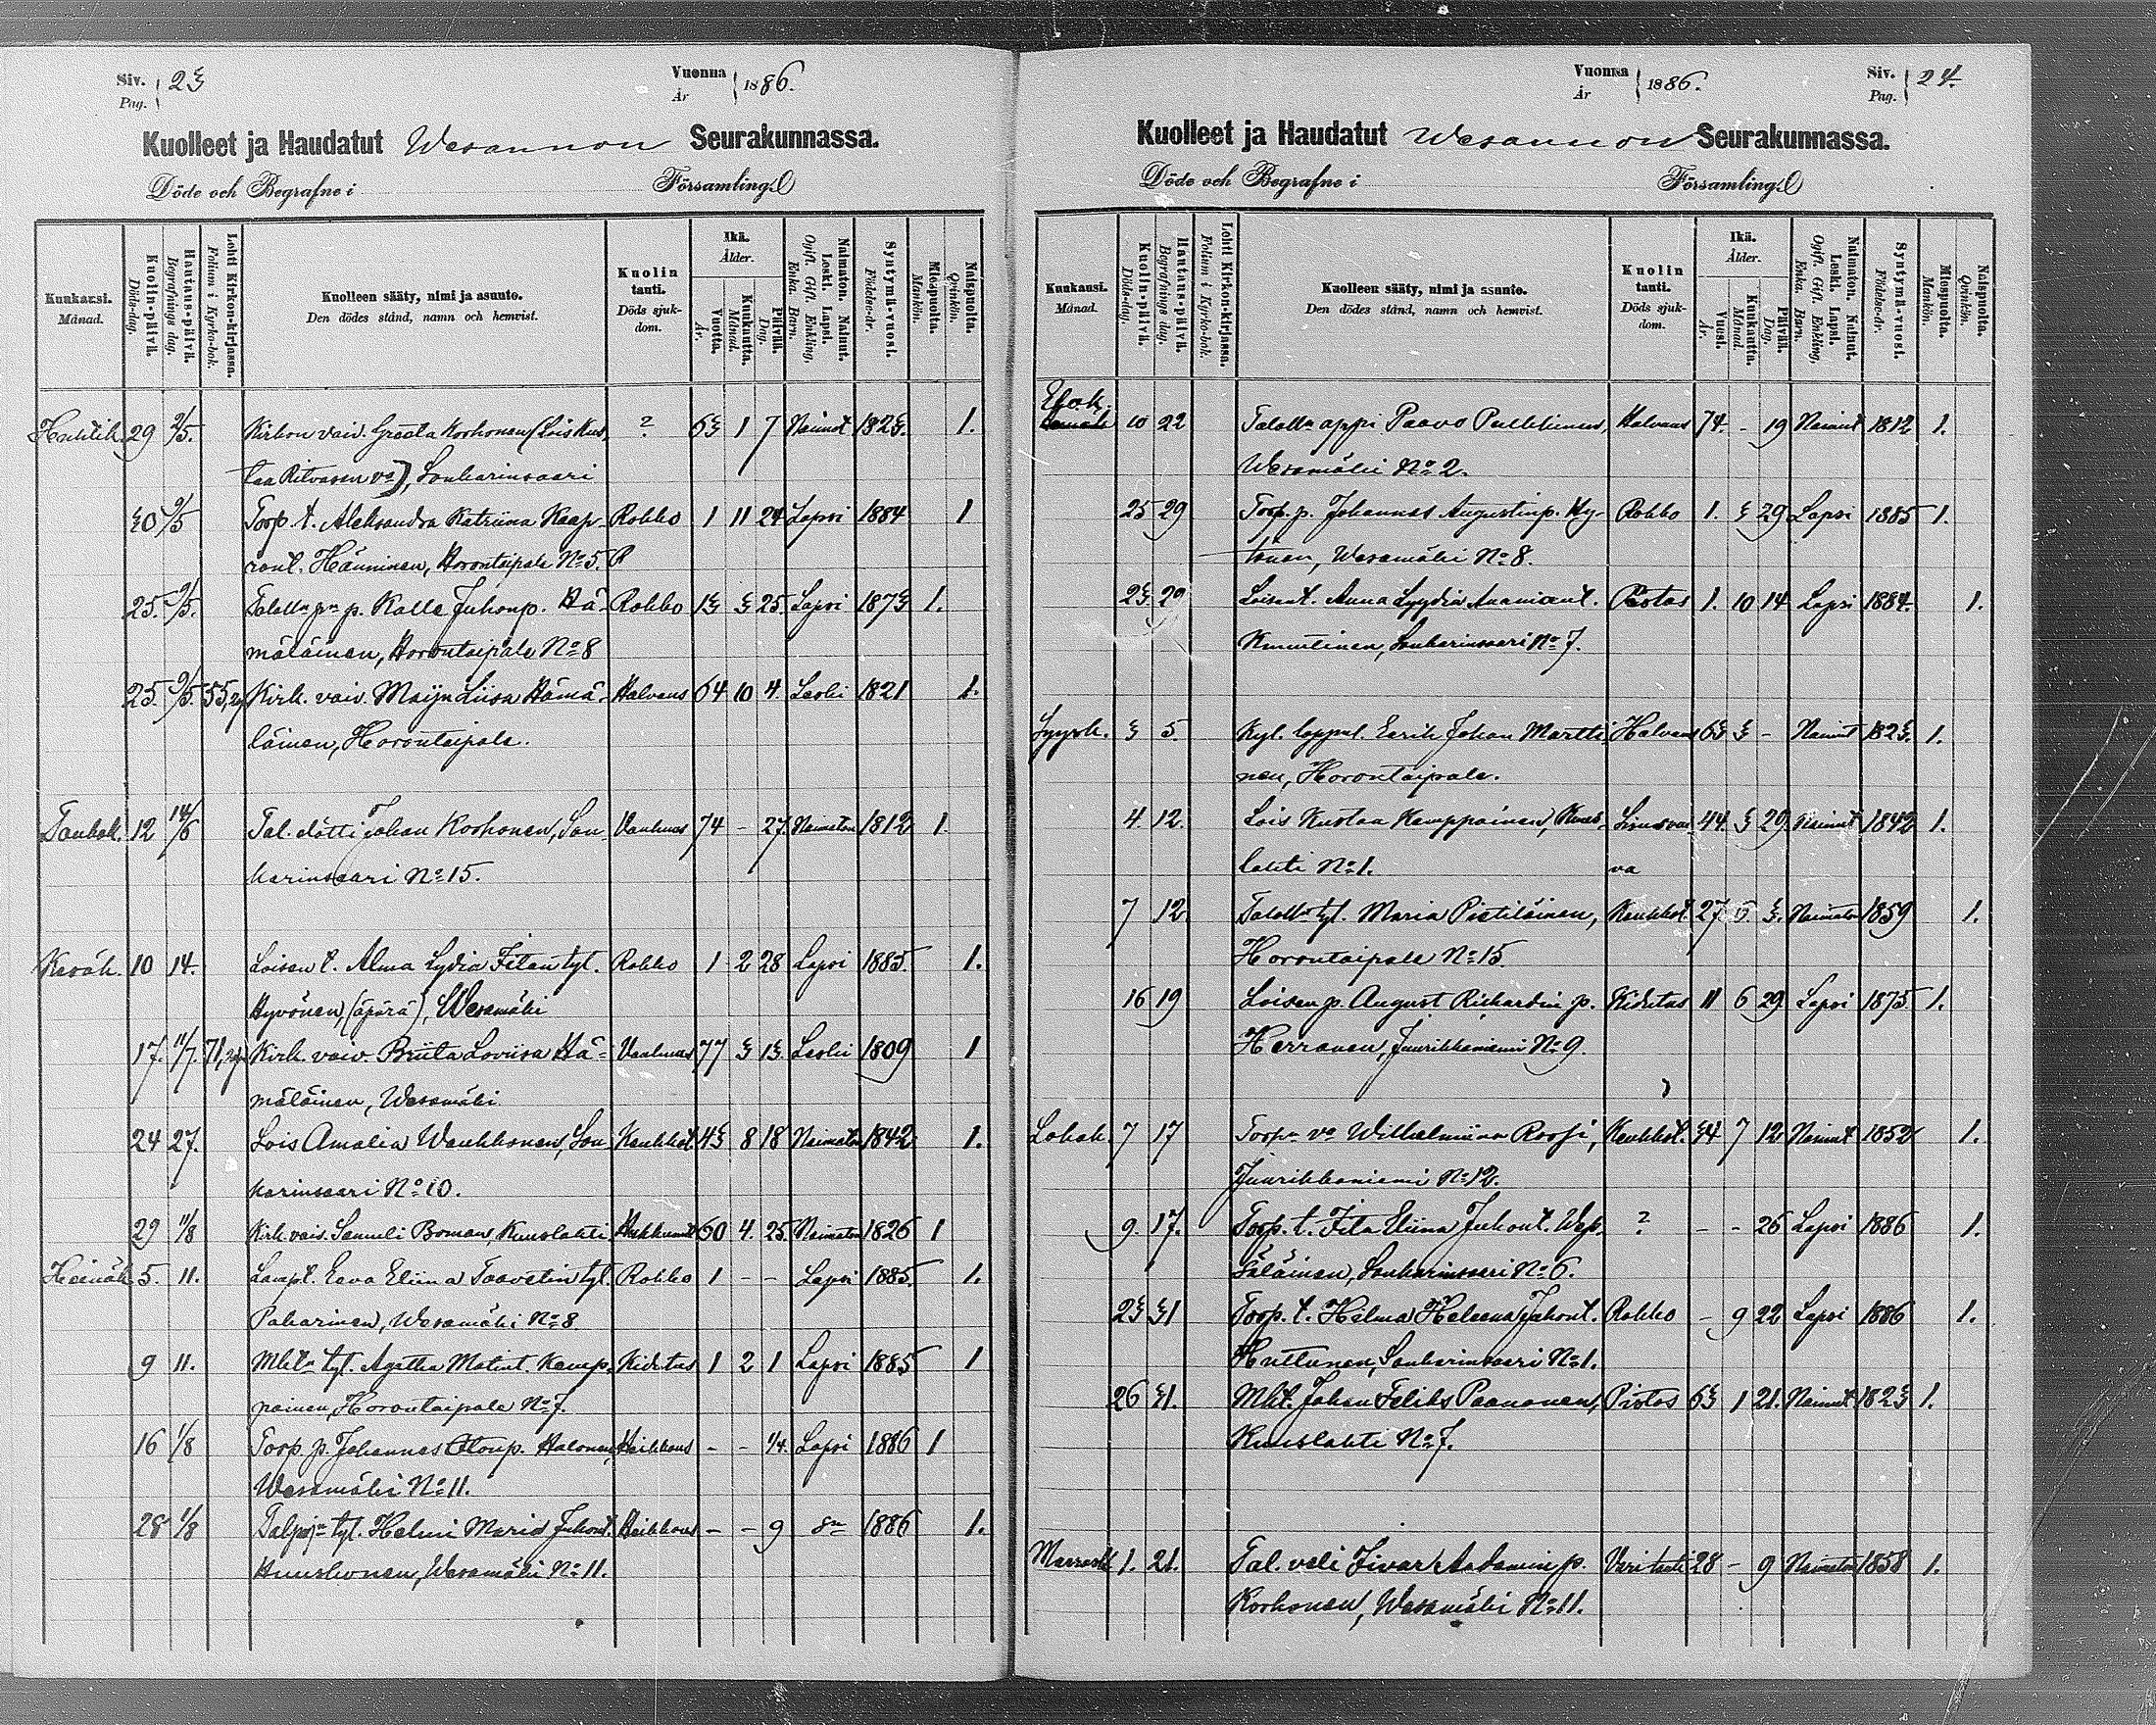 Siv. Pag. 23
Vuonna År 1886.
Kuolleet ja Haudatut Wesannon Seurakunnassa.
Döde och Begrafne i Församling
Kuukausi. Månad.
Kuolin-päivä. Döds-dag.
Hautaus-päivä. Begrafnings dag.
Lehti Kirkon-kirjassa. Folium i Kyrko-bok.
Kuolleen sääty, nimi ja asunto. Den dödes stånd, namn och hemvist.
Kuolin tauti. Döds sjukdom.
Ikä. Ålder.
Vuotta. År.
Kuukautta. Månad.
Päivää. Dag.
Naimaton. Nainut. Leski. Lapsi. Ogift. Gift. Enkling. Enka. Barn.
Syntymä-vuosi. Födelse-år.
Miespuolta. Mankön.
Naispuolta. Qvinkön.
Huhtik. 29 9/5. Kirkon vaiv. Greeta Korhonen (Lois Kus ? 63 1 7 Nainut 1823. 1.
taa Ritvasen va), Sonkarinsaari
30 9/5 Torp. t. Aleksandra Katriina Kaap- Rokko 1 11 24 Lapsi 1884 1
ront. Hänninen, Horontaipale No 5.
25. 9/5. Talolln pn p. Kalle Juhonp. Hä- Rokko 13 3 25. Lapsi 1873 1.
mäläinen, Horontaipale No 8
25. 9/5. 55, Kirk. vaiv. Maija Liisa Hämä- Halvaus 64 10 4. Leski 1821 1.
läinen, Horontaipale.
Toukok. 12 14/6 Tal. Johan Korhonen, Son- Vanhuus 74 - 27. Naimaton 1812 1.
karinsaari No 15.
Kesäk. 10 14. Loisen t. Alma Lydia Iitan tyt. Rokko 1 2 28 Lapsi 1885. 1.
Hyvönen, (äpärä), Wesamäki
17. 11/7. 71, Kirk. vaiv. Briita Loviisa Hä- Vanhuus 77 3 13. Leski 1809 1
mäläinen, Wesamäki.
24 27. Lois Amalia Wankkonen, Son- Keuhkot. 43 8 18 Naimaton 1842 1.
karinsaari No 10.
29 11/8 Kirk. vais. Samuli Boman, Kuuslahti Hukkunut 60 4. 25. Naimaton 1826 1
Heinäk. 5. 11. Lampt. Eeva Eliina Taavetin tyt. Rokko 1 - - Lapsi 1885. 1.
Pakarinen, Wesamäki No 8.
9 11. Mktn tyt. Agatha Matint. Kemp- Kidutus 1 2 1 Lapsi 1885 1
painen, Horontaipale No 7.
16 1/8 Torp. p. Johannes Halonen, Heikkous - - 1/4. Lapsi 1886 1
Wesamäki No 11.
28 1/8 tyt. Helmi Maria Juhont. Heikkous - - 9 1886 1.
Huuskonen, Wesamäki No 11.
Vuonna År 1886.
Siv. Pag. 24.
Kuolleet ja Haudatut Wesannon Seurakunnassa.
Döde och Begrafne i Församling
Kuukausi. Månad.
Kuolin-päivä. Döds-dag.
Hautaus-päivä. Begrafnings dag.
Lehti Kirkon-kirjassa. Folium i Kyrko-bok.
Kuolleen sääty, nimi ja asunto. Den dödes stånd, namn och hemvist.
Kuolin tauti. Döds sjukdom.
Ikä. Ålder.
Vuosi. År.
Kuukautta. Månad.
Päivää. Dag.
Naimaton. Nainut. Leski. Lapsi. Ogift. Gift. Enkling. Enka. Barn.
Syntymä-vuosi. Födelse-år.
Miespuolta. Mankön.
Naispuolta. Qvinkön.
Elok. 10 22 Talolln appi Paavo Pulkkinen, Halvaus 74. - 19 Nainut 1812 1.
Wesamäki No 2.
25 29 Torp. p. Johannes Augustinp. Hy- Rokko 1. 3 29 Lapsi 1885 1.
tönen, Wesamäki No 8.
23. 29 Loisent. Anna Lyydia Ananiant. Pistos 1. 10 14 Lapsi 1884. 1.
Kuuutinen, Sonkarinsaari No 7.
Syysk. 3 5. Kyl. loppul. Eerik Johan Martti- Halvaus 63 3 - Nainut 1823. 1.
nen, Horontaipale.
4. 12. Lois Kustaa Kemppainen, Kuus- 44. 3 29. Nainut 1842 1.
lahti No 1. va
7 12 Talolln tyt. Maria Pietiläinen, Keuhkot. 27. 6 3. Naimaton 1859 1.
Horontaipale No 15
16 19 Loisen p. August Rickardin p. Kidutus 11 6 29. Lapsi 1875. 1.
Herranen, Juurikkaniemi No 9.
Lokak. 7 17 Torpn va Wilhelmiina Roosi, Keuhkot. 34 7 12 Nainut 1852 1.
Juurikkaniemi No 12.
9. 17. Torp. t. Iita Eliina Juhont. Wep- ? - - 26 Lapsi 1886 1.
säläinen, Sonkarinsaari No 6.
23 31 Torp. t. Hilma Heleena Juhont. Rokko - 9 22 Lapsi 1886 1.
Huttunen, Sonkarinsaari No 1.
26 31. Mkt. Johan Feliks Paananen, Pistos 63 1 21. Nainut 1823 1.
Kuuslahti No 7.
Marrask. 1. 21. Tal. veli Iivar Aadamin p. Veri tauti 28 - 9 Naimaton 1858 1.
Korhonen, Wesamäki No 11.